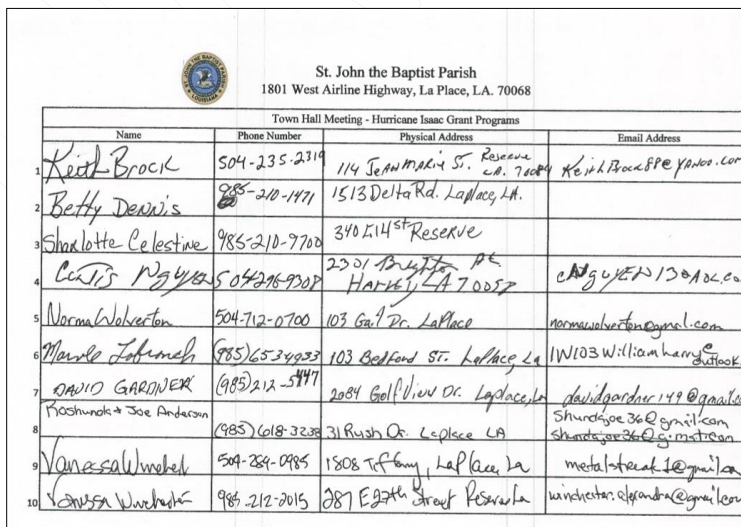 St. John the Baptist Parish
1801 West Airline Highway, La Place, LA. 70068
Town Hall Meeting - Hurricane Isaac Grant Programs
Name Phone Number Physical Address Email Address
1 Keith Brock 504-235-2319 114 Jean Marie St. Reserve LA. 70084 KeithBrock88@Yahoo.com
2 Betty Dennis 985-210-1471 1513 Delta Rd. Laplace, LA.
3 Sharlotte Celestine 985-210-9700 340 E 14st Reserve
4 Curtis Nguyen 504-296-9308 2301
Harvey LA 70058
5 Norma Wolverton 504-712-0700 103 Gail Dr. LaPlace normawolverton@gmail.com
6 (985) 653 4933 103 Bedford St. LaPlace, La 1W103williamharry@outlook
7 DAVID GARDNER (985) 212-5447 2084 Golf View Dr. Laplace, La davidgardner149@gmail.co
8 Roshunda + Joe Anderson (985) 618-3238 31 Rush Dr. Laplace LA Shundajoe36@gmail.com
9 Vanessa 504-289-0985 1808 Tiffany, LaPlace, La metalstreak1@gmail.co
10 Vanessa Winchester 985-212-2015 287 E 27th Street Reserve La winchester.alexandra@gmail.com